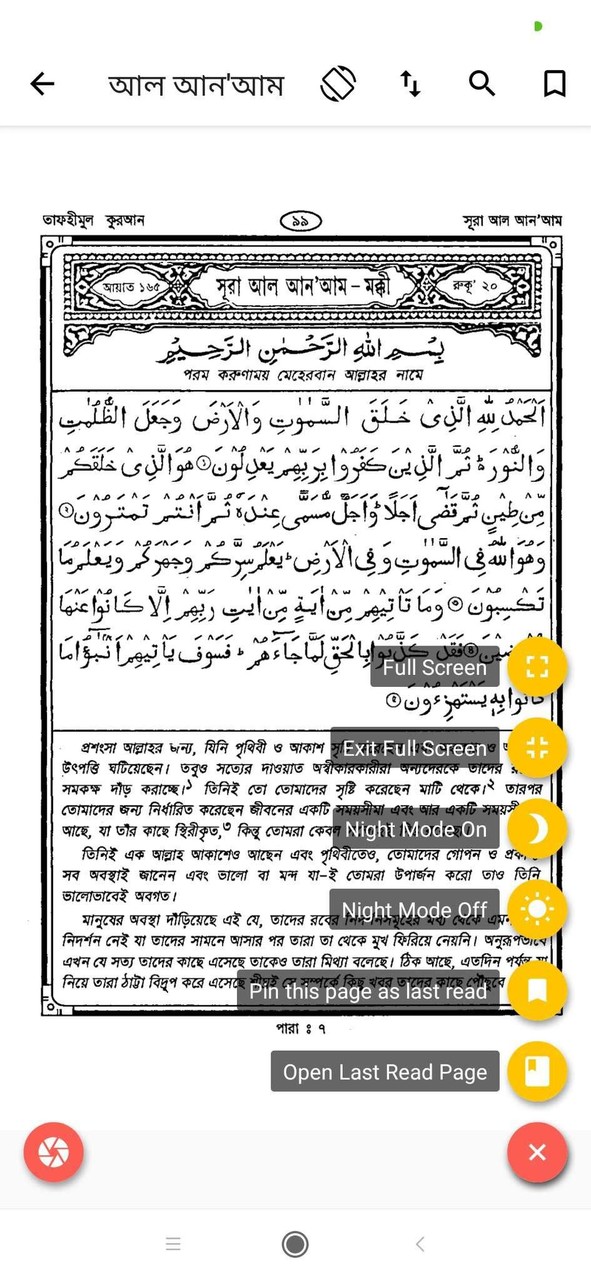 আল আন'আম
তাফহীমুল কুরআন
৯৯
সূরা আল আন'আম
আয়াত ১৬৫
সূরা আল আন'আম – মক্কী
রুকূ' ২০
بِسْمِ اللهِ الرَّحْمٰنِ الرَّحِيْمِ
পরম করুণাময় মেহেরবান আল্লাহর নামে
اَلْحَمْدُ لِلّٰهِ الَّذِىْ خَلَقَ السَّمٰوٰتِ وَالْاَرْضَ وَجَعَلَ الظُّلُمٰتِ
وَالنُّوْرَ ؕ ثُمَّ الَّذِيْنَ كَفَرُوْا بِرَبِّهِمْ يَعْدِلُوْنَ ① هُوَ الَّذِىْ خَلَقَكُمْ
مِّنْ طِيْنٍ ثُمَّ قَضٰٓى اَجَلًا ؕ وَاَجَلٌ مُّسَمًّى عِنْدَهٗ ثُمَّ اَنْتُمْ تَمْتَرُوْنَ ②
وَهُوَ اللّٰهُ فِى السَّمٰوٰتِ وَفِى الْاَرْضِ ؕ يَعْلَمُ سِرَّكُمْ وَجَهْرَكُمْ وَيَعْلَمُ مَا
تَكْسِبُوْنَ ③ وَمَا تَاْتِيْهِمْ مِّنْ اٰيَةٍ مِّنْ اٰيٰتِ رَبِّهِمْ اِلَّا كَانُوْا عَنْهَا
فَقَدْ كَذَّبُوْا بِالْحَقِّ لَمَّا جَآءَهُمْ ؕ فَسَوْفَ يَاْتِيْهِمْ اَنْۢبٰٓؤُا مَا
كَانُوْا بِهٖ يَسْتَهْزِءُوْنَ
Full Screen
প্রশংসা আল্লাহর জন্য, যিনি পৃথিবী ও আকাশ
Exit Full Screen
উৎপত্তি ঘটিয়েছেন। তবুও সত্যের দাওয়াত অস্বীকারকারীরা অন্যদেরকে তাদের
সমকক্ষ দাঁড় করাচ্ছে।১ তিনিই তো তোমাদের সৃষ্টি করেছেন মাটি থেকে।২ তারপর
তোমাদের জন্য নির্ধারিত করেছেন জীবনের একটি সময়সীমা এবং আর একটি
আছে, যা তাঁর কাছে স্থিরীকৃত,৩ কিন্তু তোমরা কেবল
Night Mode On
তিনিই এক আল্লাহ আকাশেও আছেন এবং পৃথিবীতেও, তোমাদের গোপন ও
সব অবস্থাই জানেন এবং ভালো বা মন্দ যা-ই তোমরা উপার্জন করো তাও তিনি
ভালোভাবেই অবগত।
Night Mode Off
মানুষের অবস্থা দাঁড়িয়েছে এই যে, তাদের রবের
নিদর্শন নেই যা তাদের সামনে আসার পর তারা তা থেকে মুখ ফিরিয়ে নেয়নি। অনুরূপভাবে
এখন যে সত্য তাদের কাছে এসেছে তাকেও তারা মিথ্যা বলেছে। ঠিক আছে, এতদিন পর্যন্ত
নিয়ে তারা ঠাট্টা বিদ্রূপ করে এসেছে
Pin this page as last read
পারা ঃ ৭
Open Last Read Page